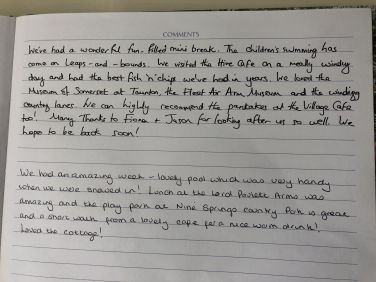 COMMENTS
We've had a wonderful fun-filled mini break. The children's swimming has
come on leaps-and-bounds. We visited the Hive Cafe on a really windy
day and had the best fish 'n' chips we've had in years. We loved the
Museum of Somerset at Taunton, the Fleet Air Arm Museum and the winding
country lanes. We can highly recommend the pancakes at the Village Cafe
too! Many Thanks to Fiona + Jason for looking after us so well. We
hope to be back soon!
We had an amazing week - lovely pool which was very handy
when we were snowed in! Lunch at the Lord Poulett Arms was
amazing and the play park at Nine Springs country Park is great
and a short walk from a lovely cafe for a nice warm drink!
Loved the cottage!